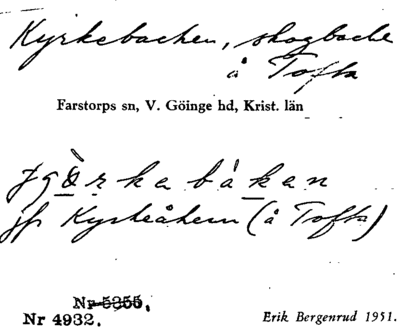 Kyrkebacken, skogbacke
å Tofta
Farstorps sn, V. Göinge hd, Krist. län
jfr Kyrkeåkern (å Tofta)
Nr 5355.
Nr 4932.
Erik Bergenrud 1951.